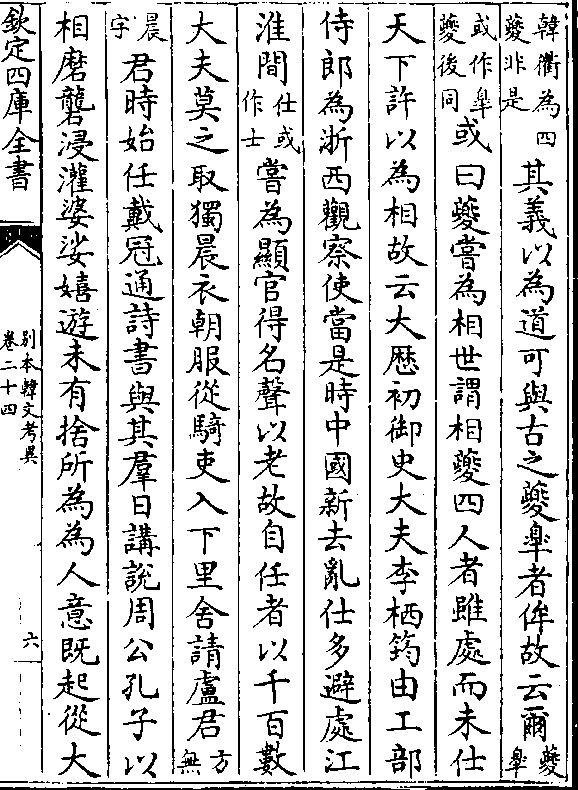 韓衢為四
夔非是
其義以為道可與古之夔臯者侔故云爾
夔
臯
或作臯
夔後同
或曰夔嘗為相世謂相夔四人者雖處而未仕
天下許以為相故云大厯初御史大夫李栖筠由工部
侍郎為浙西觀察使當是時中國新去亂仕多避處江
淮間
仕或
作士
嘗為顯官得名聲以老故自任者以千百數
大夫莫之取獨晨衣朝服從騎吏入下里舍請盧君
方
無
晨
字
君時始任戴冠通詩書與其羣日講說周公孔子以
相磨礱浸灌婆娑嬉遊未有捨所為為人意既起從大
欽定四庫全書
別本韓文考異
卷二十四
六